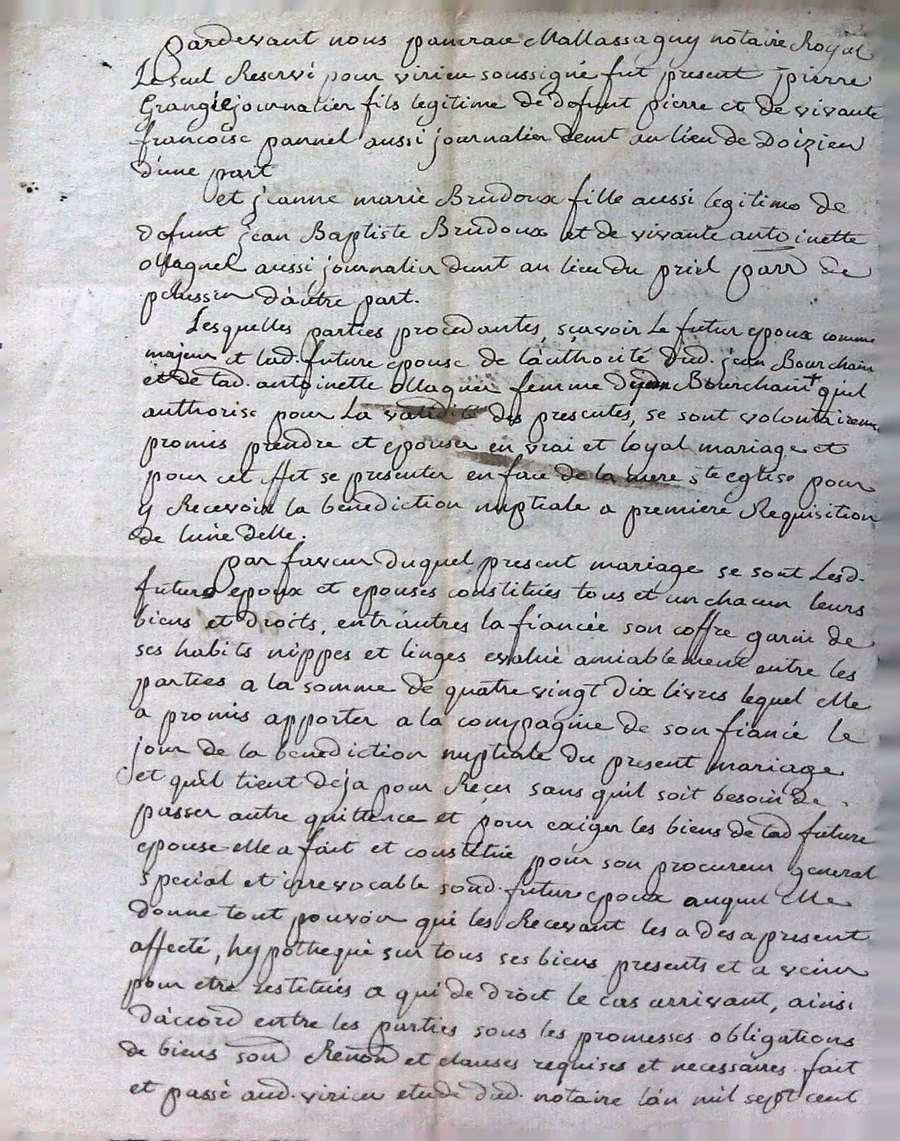 pardevant nous pancrace Mallassagny notaire Royal
Le seul Reservé pour virieu soussigné fut present pierre
Grange journalier fils legitime de defunt pierre et de vivante
francoise pannel aussi journalier demt au lieu de Doizieu
d'une part
et jeanne marie Brudoux fille aussi legitime de
defunt jean Baptiste Brudoux et de vivante antoinette
Maquel aussi journalier demt au lieu du priel parr de
pelussin d'autre part.
Lesquelles parties procedantes, scavoir Le futur epoux comme
majeur et lad. future epouse de l'authorité dud. jean Bourchain
et de lad. antoinette femme dud jean Bourchain quil
authorise pour La validité des presentes, se sont volontairemt
promis prendre et epouser en vrai et loyal mariage et
pour cet fet se presenter en face de la mere ste eglise pour
y Recevoir la benediction nuptiale a premiere Requisition
de lune delle.
par faveur duquel present mariage se sont Lesd.
futurs epoux et epouses constitués tous et un chacun leurs
biens et droits, entr'autres la fiancée son coffre garni de
ses habits nippes et linges evalué amiablement entre les
parties a la somme de quatre vingt dix livres lequel elle
a promis apporter a la compagnie de son fiancé le
jour de la benediction nuptiale du present mariage
et qu'il tient deja pour Reçu sans qu'il soit besoin de
passer autre quittence et pour exiger les biens de lad future
epouse elle a fait et constitué pour son procureur general
special et irrevocable sond. futur epoux auquel elle
donne tout pouvoir qui les Recevant les a des a present
affecté, hypothequé sur tous ses biens presents et a venir
pour etre restitués a qui de droit le cas arrivant, ainsi
d'accord entre les parties sous les promesses obligations
de biens Renon et clauses requises et necessaires. fait
et passé aud. virieu etude dud. notaire l'an mil sept cent